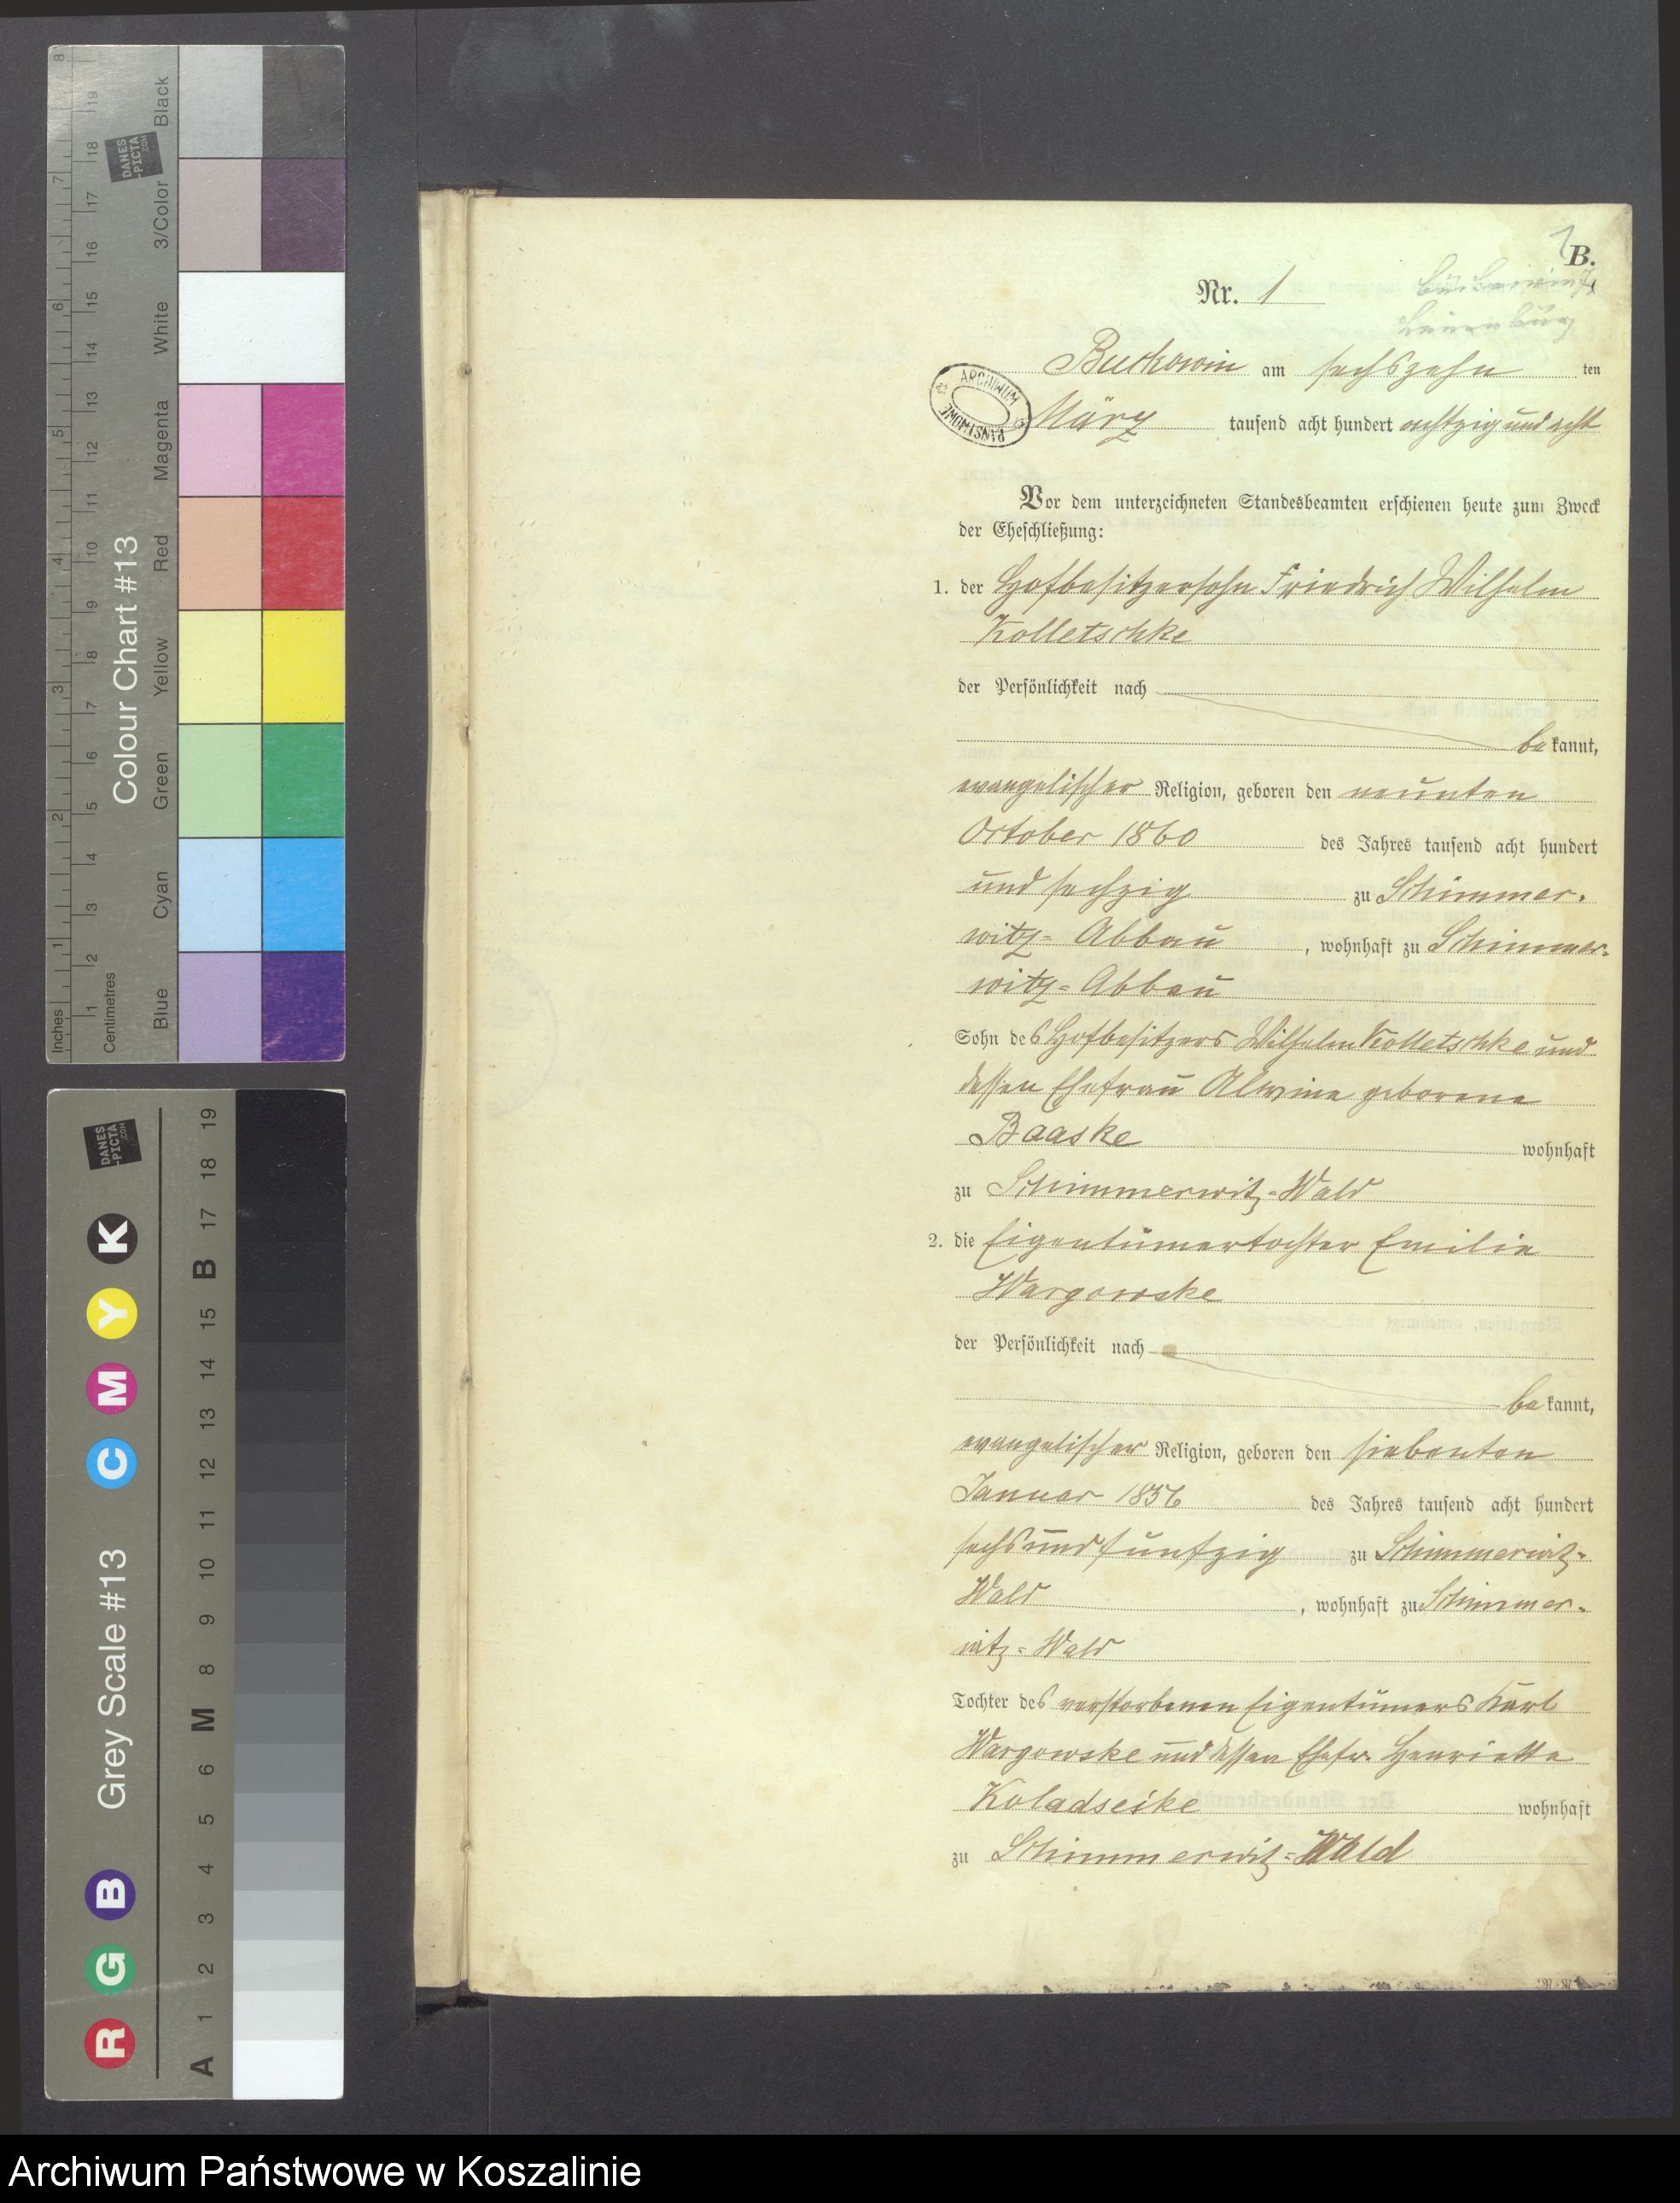 8
19
18
7
17
16
6
15
14
5
13
12
11
4
10
9
3
8
7
2
6
5
4
1
3
2
1
Inches
Centimetres
Colour Chart #13
Black
3/Color
White
Magenta
Red
Yellow
Green
Cyan
Blue
DANES
-PICTA
.COM
DANES
-PICTA
.COM
Grey Scale #13
K
Y
M
C
B
G
R
19
18
17
B
15
14
13
12
11
10
9
8
M
6
5
4
3
2
1
A
B.
Nr. 1
Buckowin am sechszehn ten
ARCHIWUM
PAŃSTWOWE
März tausend acht hundert achtzig und acht
Vor dem unterzeichneten Standesbeamten erschienen heute zum Zweck
der Eheschließung:
1. der Hofbesitzersohn Friedrich Wilhelm
Kolletschke
der Persönlichkeit nach
bekannt,
evangelischer Religion, geboren den neunten
October 1860 des Jahres tausend acht hundert
und sechzig zu Schimmer-
witz-Abbau, wohnhaft zu Schimmer-
witz-Abbau
Sohn des Hofbesitzers Wilhelm Kolletschke und
dessen Ehefrau Alwine geborene
Baaske wohnhaft
zu Schimmerwitz-Wald
2. die Eigentümertochter Emilie
Wargowske
der Persönlichkeit nach
bekannt,
evangelischer Religion, geboren den siebenten
Januar 1856 des Jahres tausend acht hundert
sechs und fünfzig zu Schimmerwitz-
Wald, wohnhaft zu Schimmer-
witz-Wald
Tochter des verstorbenen Eigentümers Karl
Wargowske und dessen Ehefr. Henriette
Koladseike wohnhaft
zu Schimmerwitz-Wald
Archiwum Państwowe w Koszalinie